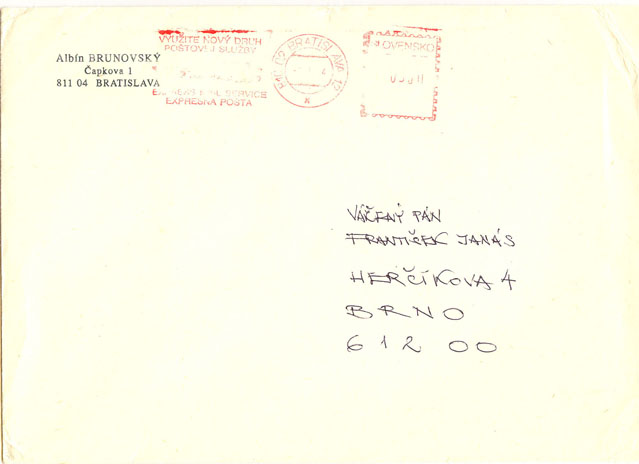 Albín BRUNOVSKÝ
Čapkova 1
811 04 BRATISLAVA
VYUŽITE NOVÝ DRUH
POŠTOVEJ SLUŽBY
SERVICE
EXPRESNÁ POŠTA
BRATISLAVA 12
x
SLOVENSKO
VÁŽENÝ PÁN
FRANTIŠEK JANÁS
HERČÍKOVA 4
BRNO
612 00